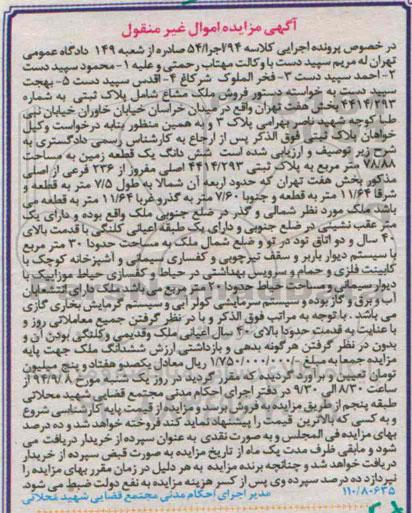 آگهی مزایده اموال غیر منقول
در خصوص پرونده اجرایی کلاسه ۵۴/اجرا/۹۴ صادره از شعبه ۱۴۹ دادگاه عمومی
تهران له مریم سپید دست با وکالت مهتاب رحمتی و علیه ۱- محمود سپید دست
۲- احمد سپید دست ۳- فخر الملوک شرکاغ ۴- اقدس سپید دست ۵- بهجت
سپید دست به خواسته دستور فروش ملک مشاع شامل پلاک ثبتی به شماره
۴۴۱۴/۲۹۳ بخش هفت تهران واقع در میدان خراسان خیابان خاوران خیابان نبی
طبا کوچه شهید ناصر بهرامی پلاک ۳ و به همین منظور بنابه درخواست وکیل
خواهان پلاک ثبتی فوق الذکر پس از ارجاع به کارشناس رسمی دادگستری به
شرح زیر توصیف و ارزیابی شده است شش دانگ یک قطعه زمین به مساحت
۷۸/۸۸ متر مربع به پلاک ثبتی ۴۴۱۴/۲۹۳ اصلی مفروز از ۲۳۶ فرعی از اصلی
مذکور بخش هفت تهران که حدود اربعه آن شمالا به طول ۷/۵ متر به قطعه و
شرقا ۱۱/۶۴ متر به قطعه و جنوبا ۷/۶۰ متر به گذر و غربا ۱۱/۶۴ متر به قطعه می
باشد ملک مورد نظر شمالی و گذر در ضلع جنوبی ملک واقع بوده و دارای یک
متر عقب نشینی در ضلع جنوبی و دارای یک طبقه اعیانی کلنگی با قدمت بالای
۴۰ سال و دو اتاق تود در تو و ضلع شمال ملک به مساحت حدودا ۳۰ متر مربع
با سیستم دیوار باربر و سقف تیرچوبی و کفسازی سیمانی و آشپزخانه کوچک با
کابینت فلزی و حمام و سرویس بهداشتی در حیاط و کفسازی حیاط موزاییک با
دیوار سیمانی و مساحت حیاط حدودا ۲۰ متر مربع می باشد. ملک دارای انشعابات
آب و برق و گاز بوده و سیستم سرمایشی کولر آبی و سیستم گرمایش بخاری گازی
می باشد . با توجه به مراتب فوق الذکر و با در نظر گرفتن جمیع معاملاتی روز و
با عنایت به قدمت حدودا بالای ۴۰ سال اعیانی ملک وقدیمی وکلنگی بودن آن و
بدون در نظر گرفتن هرگونه بدهی و بازداشتی ارزش ششدانگ ملک جهت پایه
مزایده جمعا به مبلغ ۱/۷۵۰/۰۰۰/۰۰۰/- ریال معادل یکصدو هفتاد و پنج میلیون
تومان تعیین و بر آورد گردیده که مقرر گردید در روز یک شنبه مورخ ۹۴/۹/۸ از
ساعت ۸/۳۰ الی ۹/۳۰ در دفتر اجرای احکام مدنی مجتمع قضایی شهید محلاتی
طبقه پنجم از طریق مزایده به فروش برسد و مزایده از قیمت پایه کارشناسی شروع
و به کسی که بالاترین قیمت را پیشنهاد نماید کند فروخته خواهد شد و ده درصد
بهای مزایده فی المجلس و به صورت نقدی به عنوان سپرده از خریدار دریافت می
شود و مابقی ظرف مدت یک ماه از تاریخ مزایده به صورت قبض سپرده از خریدار
دریافت خواهد شد و چنانچه برنده مزایده به هر دلیل در زمان مقرر بهای مزایده را
نپردازد ده درصد سپرده وی پس از کسر هزینه مزایده به نفع دولت ضبط می شود.
۱۱۰/۸۰۶۳۵ مدیر اجرای احکام مدنی مجتمع قضایی شهید محلاتی